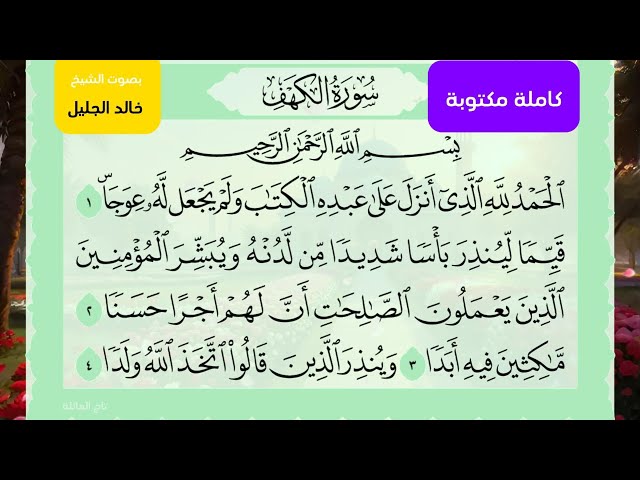 بصوت الشيخ
خالد الجليل
سُورَةُ الكَهْفِ
كاملة مكتوبة
بِسْمِ اللَّهِ الرَّحْمَٰنِ الرَّحِيمِ
الْحَمْدُ لِلَّهِ الَّذِي أَنزَلَ عَلَىٰ عَبْدِهِ الْكِتَابَ وَلَمْ يَجْعَل لَّهُ عِوَجَاۜ ١
قَيِّمًا لِّيُنذِرَ بَأْسًا شَدِيدًا مِّن لَّدُنْهُ وَيُبَشِّرَ الْمُؤْمِنِينَ
الَّذِينَ يَعْمَلُونَ الصَّالِحَاتِ أَنَّ لَهُمْ أَجْرًا حَسَنًا ٢
مَّاكِثِينَ فِيهِ أَبَدًا ٣ وَيُنذِرَ الَّذِينَ قَالُوا اتَّخَذَ اللَّهُ وَلَدًا ٤